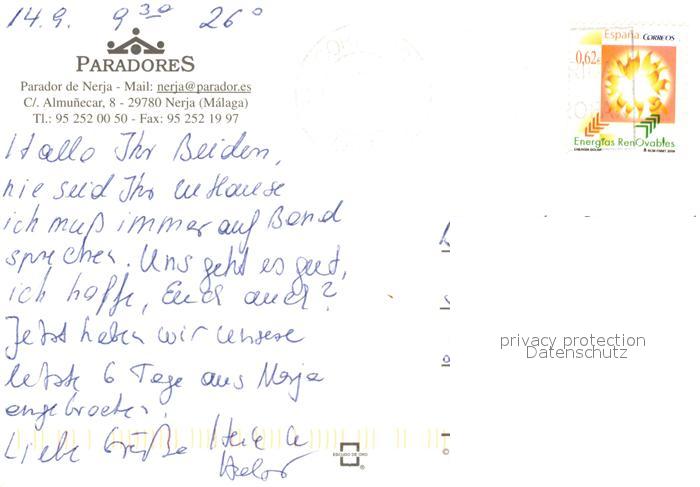 14.9. 9 30 26°
España CORREOS
0,62€
PARADORES
Parador de Nerja - Mail: nerja@parador.es
C/. Almuñecar, 8 - 29780 Nerja (Málaga)
Tl.: 95 252 00 50 - Fax: 95 252 19 97
Energías RenOvables
ENERGÍA SOLAR
Hallo Ihr Beiden,
nie seid Ihr zu Hause
ich muß immer auf Band
sprechen. Uns geht es gut,
ich hoffe, Euch auch?
Jetzt haben wir unsere
letzte 6 Tage aus Nerja
angebrochen.
Liebe Grüße
privacy protection
Datenschutz
ESCUDO DE ORO